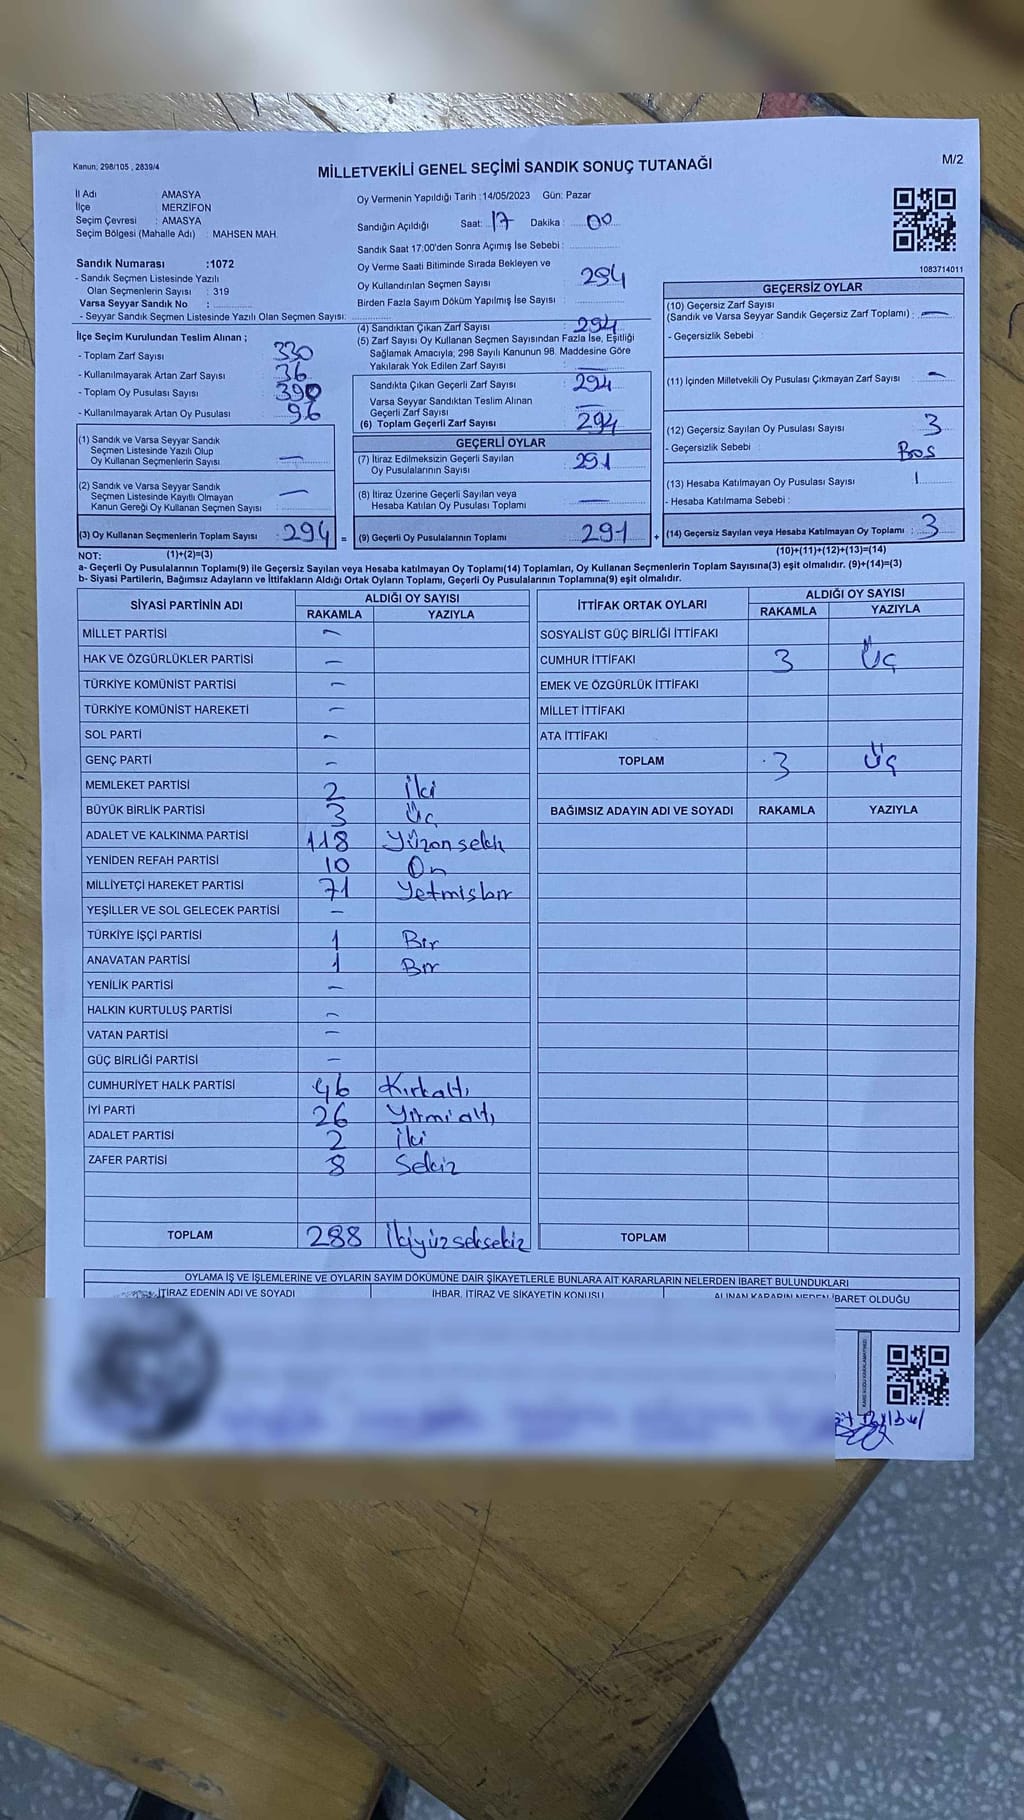 Kanun; 298/105 , 2839/4
MİLLETVEKİLİ GENEL SEÇİMİ SANDIK SONUÇ TUTANAĞI
M/2
İl Adı AMASYA
İlçe MERZİFON
Seçim Çevresi : AMASYA
Seçim Bölgesi (Mahalle Adı) : MAHSEN MAH.
Sandık Numarası :1072
- Sandık Seçmen Listesinde Yazılı
Olan Seçmenlerin Sayısı : 319
Varsa Seyyar Sandık No :
- Seyyar Sandık Seçmen Listesinde Yazılı Olan Seçmen Sayısı:
Oy Vermenin Yapıldığı Tarih :14/05/2023 Gün: Pazar
Sandığın Açıldığı Saat: 17 Dakika : 00
Sandık Saat 17:00'den Sonra Açımış İse Sebebi :
Oy Verme Saati Bitiminde Sırada Bekleyen ve
Oy Kullandırılan Seçmen Sayısı 294
Birden Fazla Sayım Döküm Yapılmış İse Sayısı
1083714011
İlçe Seçim Kurulundan Teslim Alınan ;
- Toplam Zarf Sayısı 330
- Kullanılmayarak Artan Zarf Sayısı 36
- Toplam Oy Pusulası Sayısı 390
- Kullanılmayarak Artan Oy Pusulası 96
(1) Sandık ve Varsa Seyyar Sandık
Seçmen Listesinde Yazılı Olup
Oy Kullanan Seçmenlerin Sayısı —
(2) Sandık ve Varsa Seyyar Sandık
Seçmen Listesinde Kayıtlı Olmayan
Kanun Gereği Oy Kullanan Seçmen Sayısı —
(3) Oy Kullanan Seçmenlerin Toplam Sayısı : 294 =
(4) Sandıktan Çıkan Zarf Sayısı 294
(5) Zarf Sayısı Oy Kullanan Seçmen Sayısından Fazla İse, Eşitliği
Sağlamak Amacıyla; 298 Sayılı Kanunun 98. Maddesine Göre
Yakılarak Yok Edilen Zarf Sayısı —
Sandıkta Çıkan Geçerli Zarf Sayısı 294
Varsa Seyyar Sandıktan Teslim Alınan
Geçerli Zarf Sayısı —
(6) Toplam Geçerli Zarf Sayısı 294
GEÇERLİ OYLAR
(7) İtiraz Edilmeksizin Geçerli Sayılan
Oy Pusulalarının Sayısı 291
(8) İtiraz Üzerine Geçerli Sayılan veya
Hesaba Katılan Oy Pusulası Toplamı —
(9) Geçerli Oy Pusulalarının Toplamı : 291 +
GEÇERSİZ OYLAR
(10) Geçersiz Zarf Sayısı
(Sandık ve Varsa Seyyar Sandık Geçersiz Zarf Toplamı) : —
- Geçersizlik Sebebi :
(11) İçinden Milletvekili Oy Pusulası Çıkmayan Zarf Sayısı —
(12) Geçersiz Sayılan Oy Pusulası Sayısı 3
- Geçersizlik Sebebi : Boş
(13) Hesaba Katılmayan Oy Pusulası Sayısı
- Hesaba Katılmama Sebebi :
(14) Geçersiz Sayılan veya Hesaba Katılmayan Oy Toplamı : 3
NOT: (1)+(2)=(3)
(10)+(11)+(12)+(13)=(14)
a- Geçerli Oy Pusulalarının Toplamı(9) ile Geçersiz Sayılan veya Hesaba katılmayan Oy Toplamı(14) Toplamları, Oy Kullanan Seçmenlerin Toplam Sayısına(3) eşit olmalıdır. (9)+(14)=(3)
b- Siyasi Partilerin, Bağımsız Adayların ve İttifakların Aldığı Ortak Oyların Toplamı, Geçerli Oy Pusulalarının Toplamına(9) eşit olmalıdır.
SİYASİ PARTİNİN ADI ALDIĞI OY SAYISI
RAKAMLA YAZIYLA
MİLLET PARTİSİ —
HAK VE ÖZGÜRLÜKLER PARTİSİ —
TÜRKİYE KOMÜNİST PARTİSİ —
TÜRKİYE KOMÜNİST HAREKETİ —
SOL PARTİ —
GENÇ PARTİ —
MEMLEKET PARTİSİ 2 İki
BÜYÜK BİRLİK PARTİSİ 3 Üç
ADALET VE KALKINMA PARTİSİ 118 Yüzonsekiz
YENİDEN REFAH PARTİSİ 10 On
MİLLİYETÇİ HAREKET PARTİSİ 71 Yetmişbir
YEŞİLLER VE SOL GELECEK PARTİSİ —
TÜRKİYE İŞÇİ PARTİSİ 1 Bir
ANAVATAN PARTİSİ 1 Bir
YENİLİK PARTİSİ —
HALKIN KURTULUŞ PARTİSİ —
VATAN PARTİSİ —
GÜÇ BİRLİĞİ PARTİSİ —
CUMHURİYET HALK PARTİSİ 46 Kırkaltı
İYİ PARTİ 26 Yirmialtı
ADALET PARTİSİ 2 İki
ZAFER PARTİSİ 8 Sekiz
TOPLAM 288 İkiyüzseksekiz
İTTİFAK ORTAK OYLARI ALDIĞI OY SAYISI
RAKAMLA YAZIYLA
SOSYALİST GÜÇ BİRLİĞİ İTTİFAKI
CUMHUR İTTİFAKI 3 Üç
EMEK VE ÖZGÜRLÜK İTTİFAKI
MİLLET İTTİFAKI
ATA İTTİFAKI
TOPLAM 3 Üç
BAĞIMSIZ ADAYIN ADI VE SOYADI RAKAMLA YAZIYLA
TOPLAM
OYLAMA İŞ VE İŞLEMLERİNE VE OYLARIN SAYIM DÖKÜMÜNE DAİR ŞİKAYETLERLE BUNLARA AİT KARARLARIN NELERDEN İBARET BULUNDUKLARI
İTİRAZ EDENİN ADI VE SOYADI İHBAR, İTİRAZ VE ŞİKAYETİN KONUSU ALINAN KARARIN NEDEN İBARET OLDUĞU